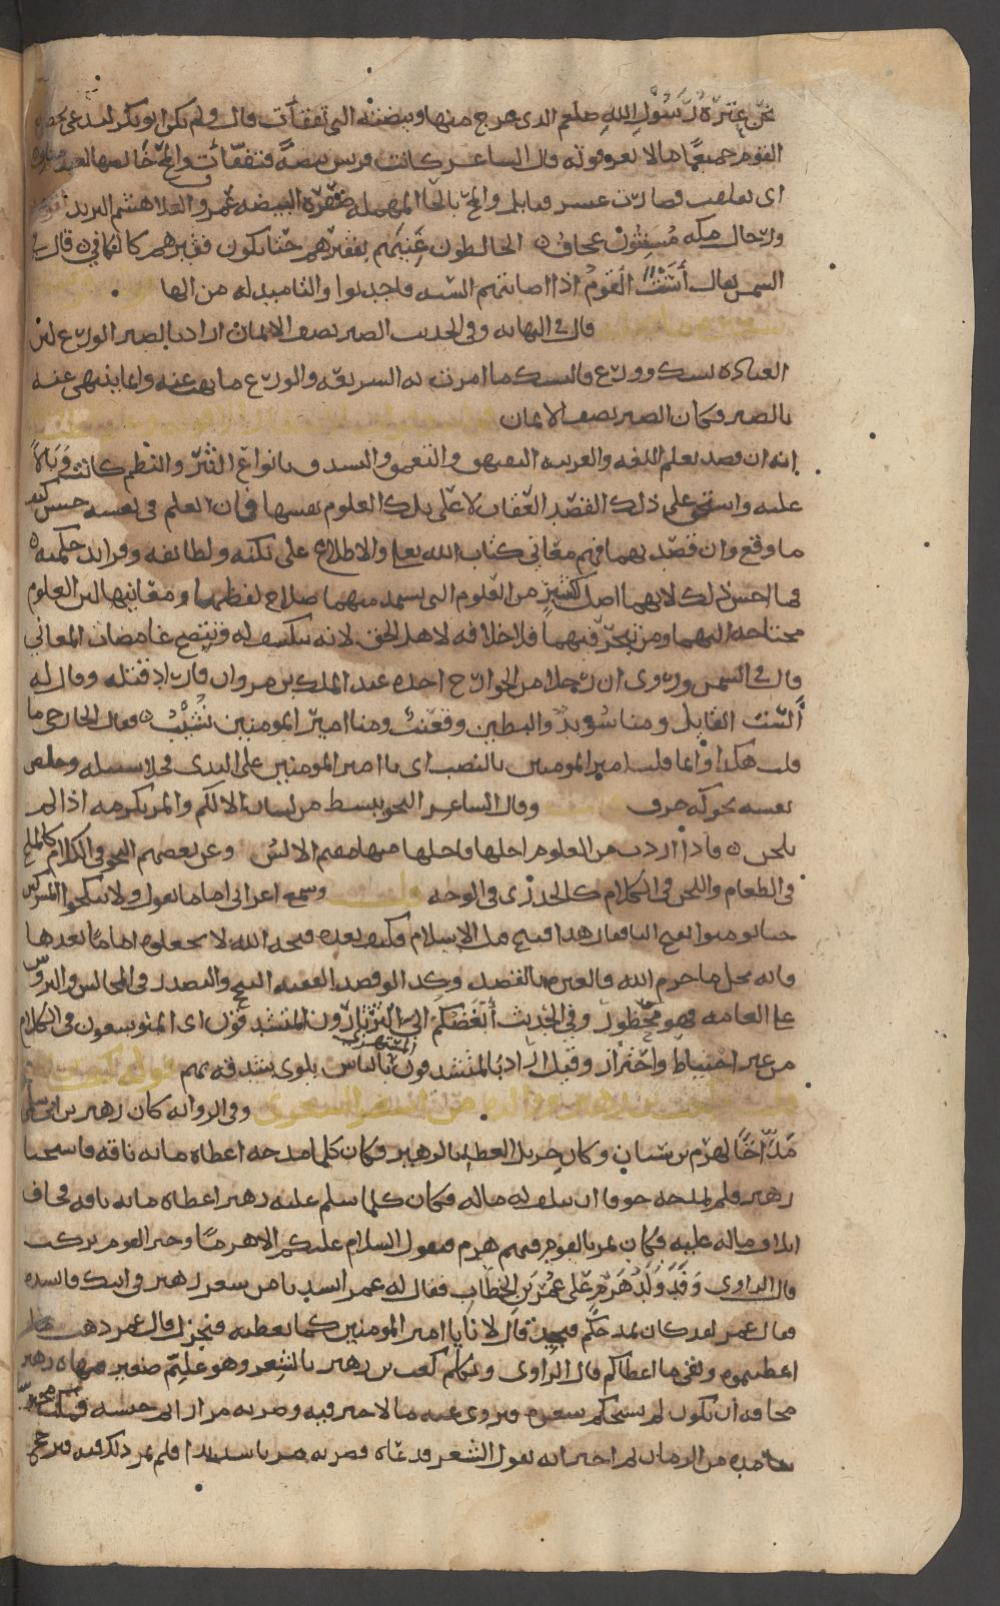 نحن عترة رسول الله صلعم الذى خرج منها وبيضته التى تفقأت قال ولم يكن ابو بكر ليدعى بحضرة
القوم جميعًا ما لا يعرفونه قال الشاعر كانت قريش بيضةً فتفقّأت والمحّ خالصها لعبد مناف
اى تعلقت فصارت والمحّ بالحا المهملة صُفرة البيضة عمرو العلا هشم الثريد لقومه
ورجال مكة مُسنِتون عجاف الخالطون غَنيّهم بفقيرهم حتى يكون فقيرهم كالكافي قال في
الشمس يقال أسْنَتَ القوم اذا اصابتهم السنة واجدبوا والتا مبدلة من الها
قال فى النهاية وفى الحديث الصبر نصف الايمان اراد بالصبر الورع لان
العبادة نسك وورع فالنسك ما امرت به الشريعة والورع ما نهت عنه وانما ينتهى عنه
بالصبر فكان الصبر نصف الايمان
انه ان قصد بعلم اللغة والعربية التفيهق والتعمق والتشدق بانواع النثر والنظم كانت وبالاً
عليه واستحق على ذلك القصد العقاب لا على تلك العلوم نفسها فان العلم فى نفسه حسن كيف
ما وقع وان قصد بهما فهم معانى كتاب الله تعا والاطلاع على نكته ولطائفه وفرايد حكمه
فما احسن ذلك لانهما اصل كثير من العلوم التى يستمد منهما صلاح لفظها ومعانيها لان العلوم
محتاجة اليهما ومن تبحّر فيهما فلا خلافه لاهل الحق لانه ينكشف له ويتضح غامضات المعانى
قال فى الشمس وروى ان رجلا من الخوارج اخذه عبد الملك بن مروان فاراد قتله وقال له
ألست القايل ومنا سُويدٌ والبطين وقعنبٌ ومنا اميرُ المومنين شبيبُ فقال الخارجى ما
قلت هكذا وانما قلت امير المومنين بالنصب اى يا امير المومنين على الندى فخلا سبيله وخلص
نفسه بحركة حرف وقال الشاعر النحو يبسط من لسان الالكم والمر يكرمه اذا لم
يلحن فاذا اردت من العلوم اجلها فاجلها منها مقيم الالسن وعن بعضهم النحو فى الكلام كالملح
فى الطعام واللحن فى الكلام كالجدرى فى الوجه وسمع اعرابى اماما يقول ولا تنكحوا المشركين
حتا يومنوا بفتح التا فقال هذا قبيح قبل الاسلام فكيف بعده قبحه الله لا تجعلوه اماما بعدها
فانه يحل ما حرم الله فالعبرة بالقصد وكذا لو قصد الفقيه التبجح والتصدر فى المجالس والتروّس
على العامة فهو محظور وفى الحديث أبغضكم الىّ الثرثارون المتشدقون اى المتوسعون فى الكلام
من غير احتياط واحتراز وقيل اراد بالمتشدقون المستهزى بالناس يلوى شدقه بهم
وفى الرواية كان زهير بن ابى سلمى
مَدّاحًا لهرم بن سنان وكان جزيل العطية لزهير فكان كلما مدحه اعطاه مائة ناقة فاستحيا
زهير فلم يمدحه خوفا ان يتلف له ماله فكان كلما سلم عليه زهير اعطاه مائة ناقة فخاف
اتلاف ماله عليه فكان يمر بالقوم فيهم هرم فيقول السلام عليكم الا هرمًا وخير القوم تركت
قال الراوى وَفَدَ وَلَدُ هَرِم على عمر بن الخطاب فقال له عمر انشدنا من شعر زهير فى ابيك فانشده
فقال عمر لقد كان يمدحكم فيجيد قال لانا يا امير المومنين كنا نعطيه فنجزل قال عمر ذهب ما
اعطيتموه وبقى ما اعطاكم قال الراوى وتكلم كعب بن زهير بالشعر وهو غليّم صغير فنهاه زهير
مخافة ان تكون لم يستحكم شعره فيروى عنه ما لا خير فيه وضربه مرارا ثم حبسه
مدة من الزمان ثم اخبر انه يقول الشعر فدعاه فضربه ضربا شديدا فلم يمر ذلك فيه